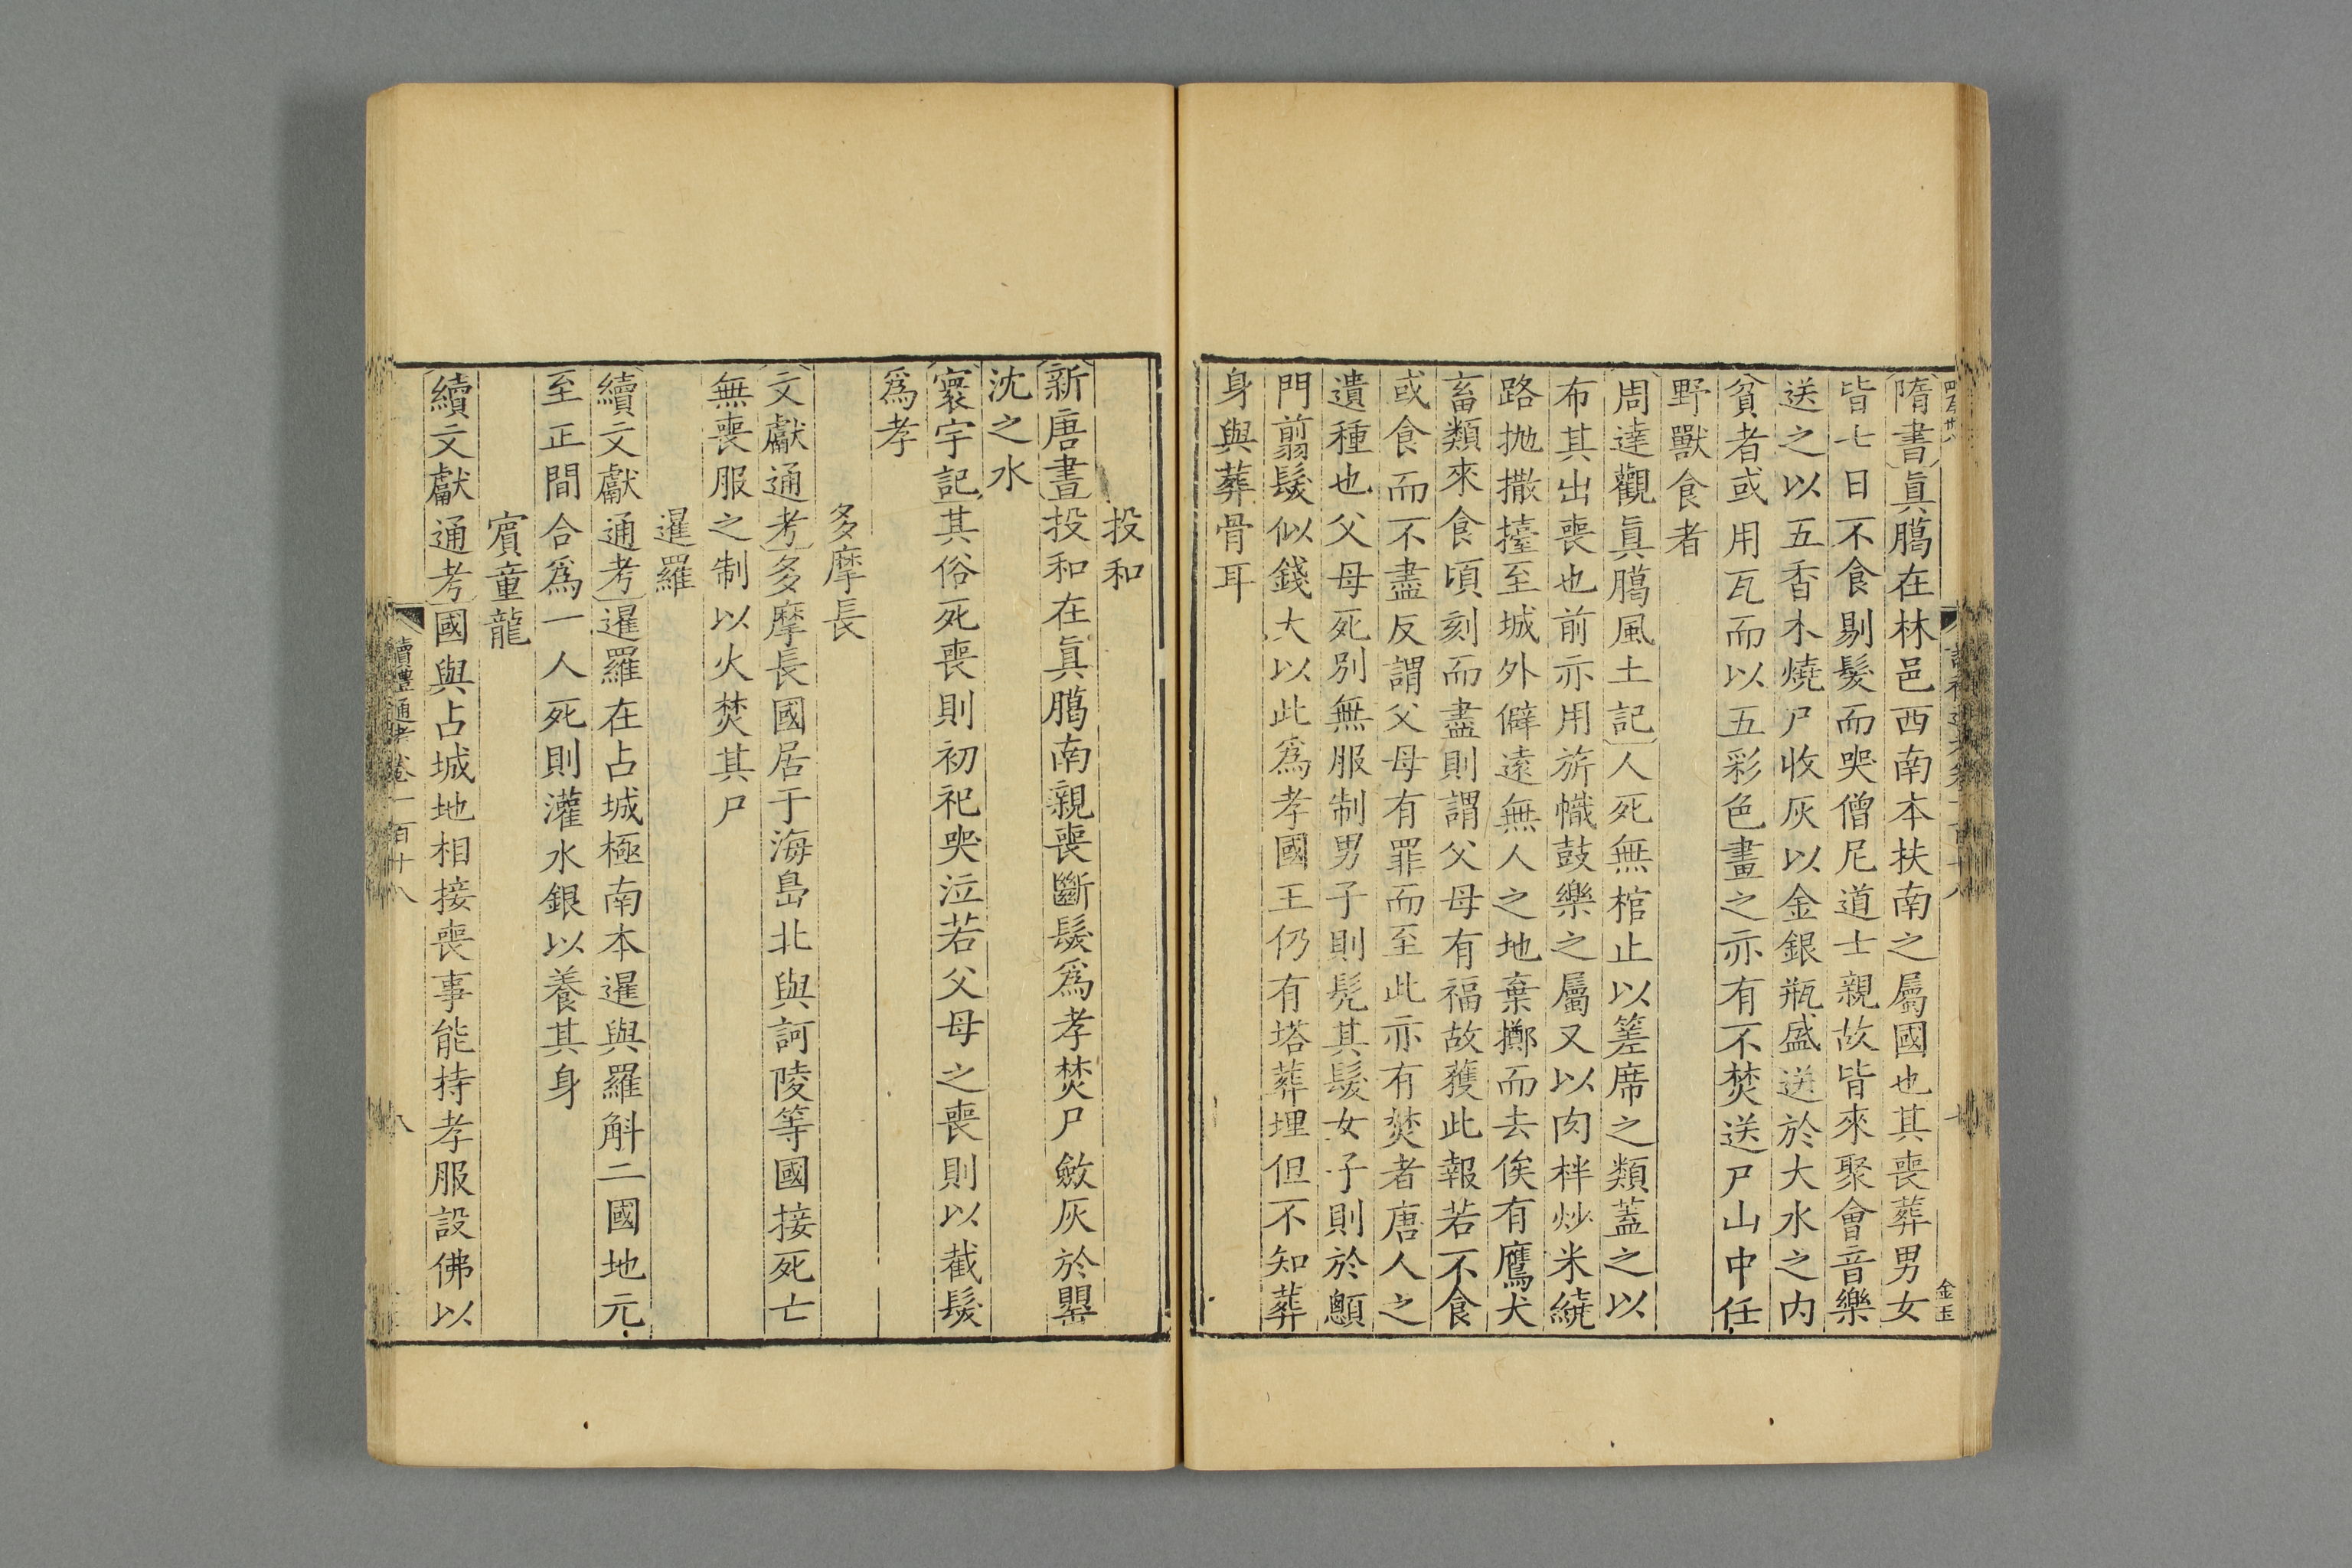 隋書眞臈在林邑西南本扶南之屬國也其喪葬男女
皆七日不食剔髮而哭僧尼道士親故皆來聚會音樂
送之以五香木燒尸收灰以金銀瓶盛送於大水之内
貧者或用瓦而以五彩色畫之亦有不焚送尸山中任
野獸食者
周達觀眞臈風土記人死無棺止以䇪席之類蓋之以
布其出喪也前亦用旂幟鼓樂之屬又以肉柈炒米繞
路抛撒擡至城外僻遠無人之地棄擲而去俟有鷹犬
畜類來食頃刻而盡則謂父母有福故獲此報若不食
或食而不盡反謂父母有罪而至此亦有焚者唐人之
遺種也父母死別無服制男子則髡其髮女子則於顖
門翦髮似錢大以此爲孝國王仍有塔葬埋但不知葬
身與葬骨耳
金玉
投和
新唐書投和在眞臈南親喪斷髮爲孝焚尸斂灰於罌
沈之水
寰宇記其俗死喪則初祀哭泣若父母之喪則以截髮
爲孝
多摩長
文獻通考多摩長國居于海島北與訶陵等國接死亡
無喪服之制以火焚其尸
暹羅
續文獻通考暹羅在占城極南本暹與羅斛二國地元
至正間合爲一人死則灌水銀以養其身
賓童龍
續文獻通考國與占城地相接喪事能持孝服設佛以
讀禮通考卷一百十八
八